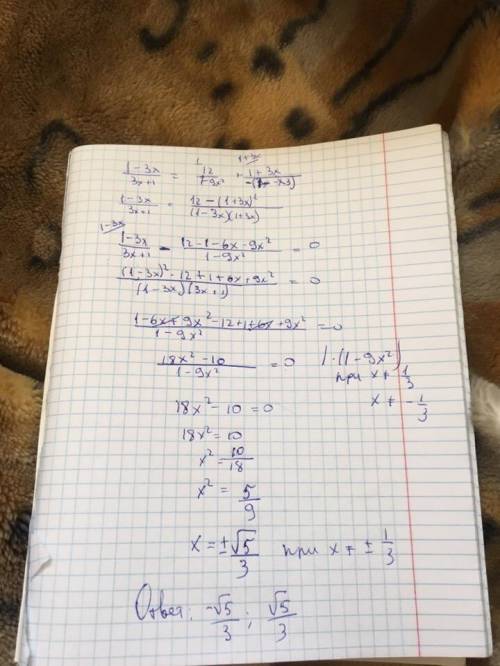 1+3x
(1-3x)/(3x+1) = 12/(1-9x²) + (1+3x)/(-(1-3x))
(1-3x)/(3x+1) = (12-(1+3x)²)/((1-3x)(1+3x))
1-3x
(1-3x)/(3x+1) - (12-1-6x-9x²)/(1-9x²) = 0
((1-3x)²-12+1+6x+9x²)/((1-3x)(3x+1)) = 0
(1-6x+9x²-12+1+6x+9x²)/(1-9x²) = 0
(18x²-10)/(1-9x²) = 0 | · (1-9x²)
при x ≠ 1/3
x ≠ -1/3
18x²-10=0
18x²=10
x²=10/18
x² = 5/9
x = ±√5/3 при x ≠ ± 1/3
Ответ: -√5/3 ; √5/3